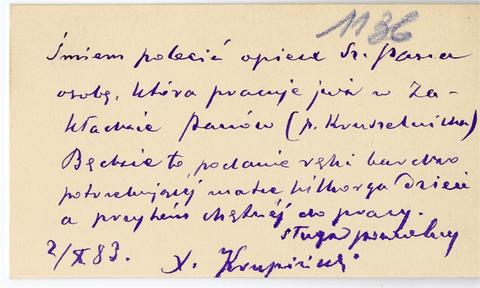 1136
Śmiem polecić opiece Sz. Pana
osobę, która pracuje już w Za-
kładzie Panów (p. Kruszelnicka)
Będzie to podanie ręki bardzo
potrzebującej matce kilkorga dzieci
a przytem chętnej do pracy.
sługa powolny
2/X 83. X. Krupiński